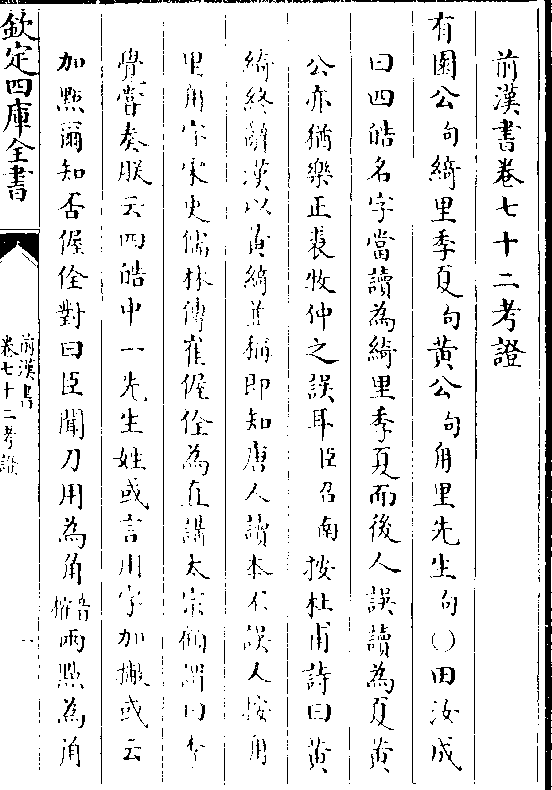 前漢書卷七十二考證
有園公句綺里季夏句黃公句甪里先生句〇田汝成
曰四皓名字當讀為綺里季夏而後人誤讀為夏黃
公亦猶樂正裘牧仲之誤耳臣召南按杜甫詩曰黃
綺終辭漢以黃綺並稱即知唐人讀本不誤又按甪
里甪字宋史儒林傳崔偓佺為直講太宗顧謂曰李
覺嘗奏朕云四皓中一先生姓或言用字加撇或云
加點爾知否偓佺對曰臣聞刀用為角音榷兩點為甪
欽定四庫全書
前漢書
卷七十二考證
一